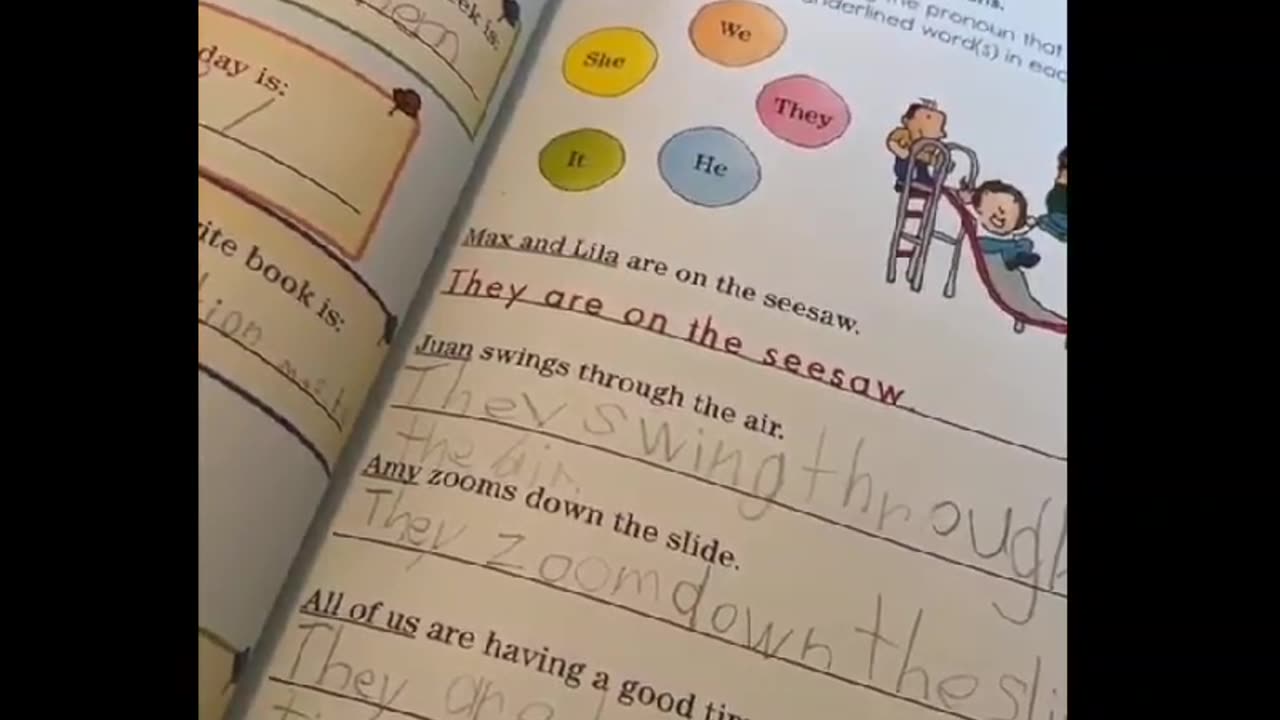 ek is:
day is:
ite book is:
tion
the pronoun that
underlined word(s) in eac
We
She
They
It
He
Max and Lila are on the seesaw.
They are on the seesaw.
Juan swings through the air.
They swing through
the air.
Amy zooms down the slide.
They zoom down the sli
All of us are having a good tim
They are